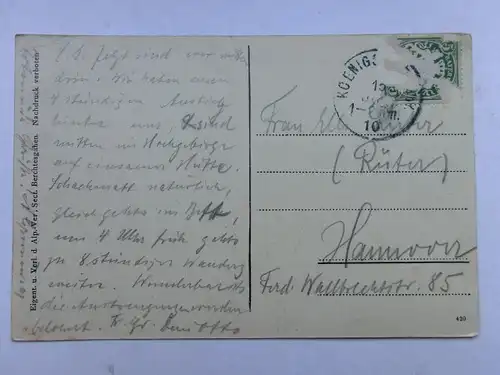 L. E. jetzt sind wir mitten
drin. Wir haben einen
4 stündigen Aufstieg
hinter uns, & sind
mitten im Hochgebirge
auf einsamer Hütte.
Schachmatt natürlich,
gleich gehts ins Bett,
um 4 Uhr früh gehts
zu 8 stündiger Wanderg
weiter. Wunderbar ists
die Anstrengungen werden
belohnt. Hr. Gr. Dein Otto
Eigent. u. Verl. d Alp.-Ver. Sect. Berchtesgaden. Nachdruck verboten
KOENIG
10
Frau
(Rüter)
Hannover
Ferd Wallbrechtstr. 85
420